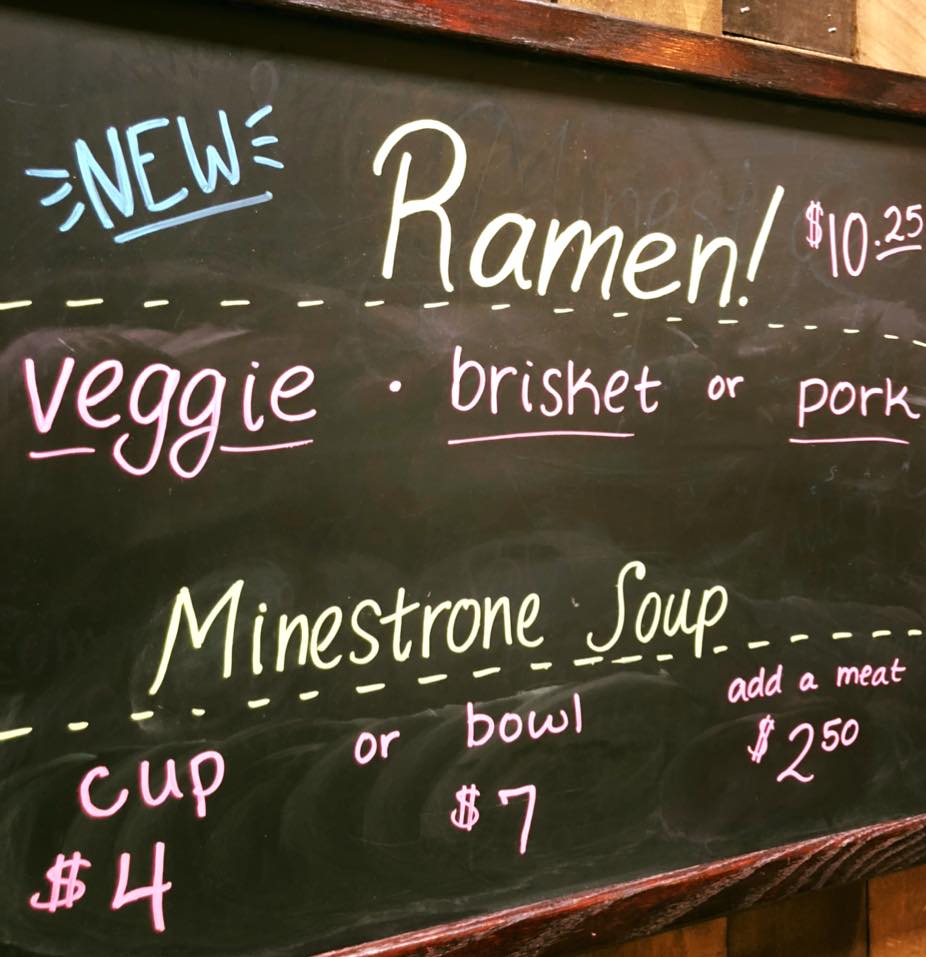 NEW
Ramen! $10.25
veggie · brisket or pork
Minestrone Soup
cup or bowl add a meat
$4 $7 $2.50